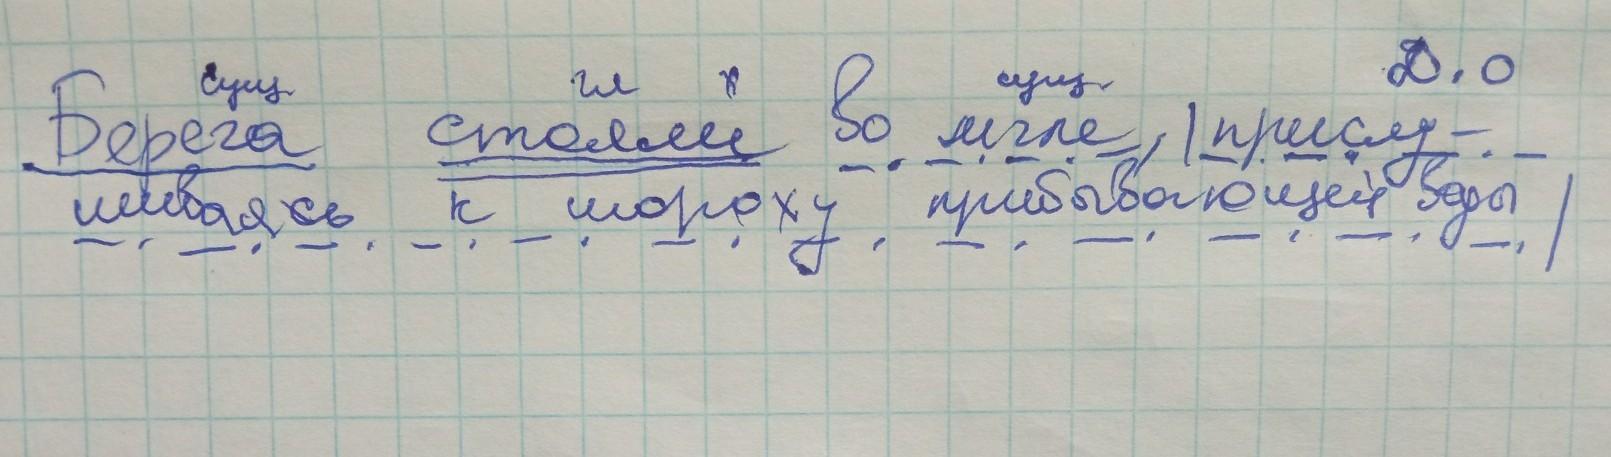 сущ гл х сущ. Д.О
Берега стояли во мгле, | прислу-
шиваясь к шороху прибывающей воды |